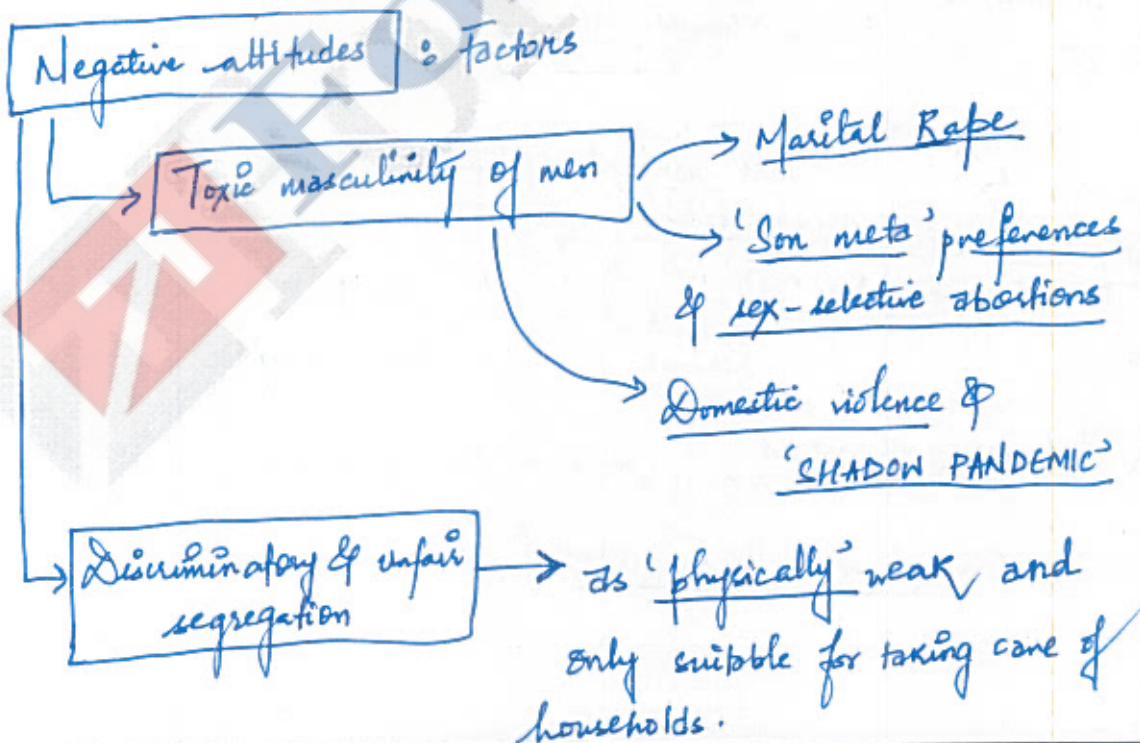 Negative attitudes : Factors
Toxic masculinity of men
Marital Rape
'Son meta' preferences
& sex-selective abortions
Domestic violence &
'SHADOW PANDEMIC'
Discriminatory & unfair
segregation
as 'physically' weak and
only suitable for taking care of
households.